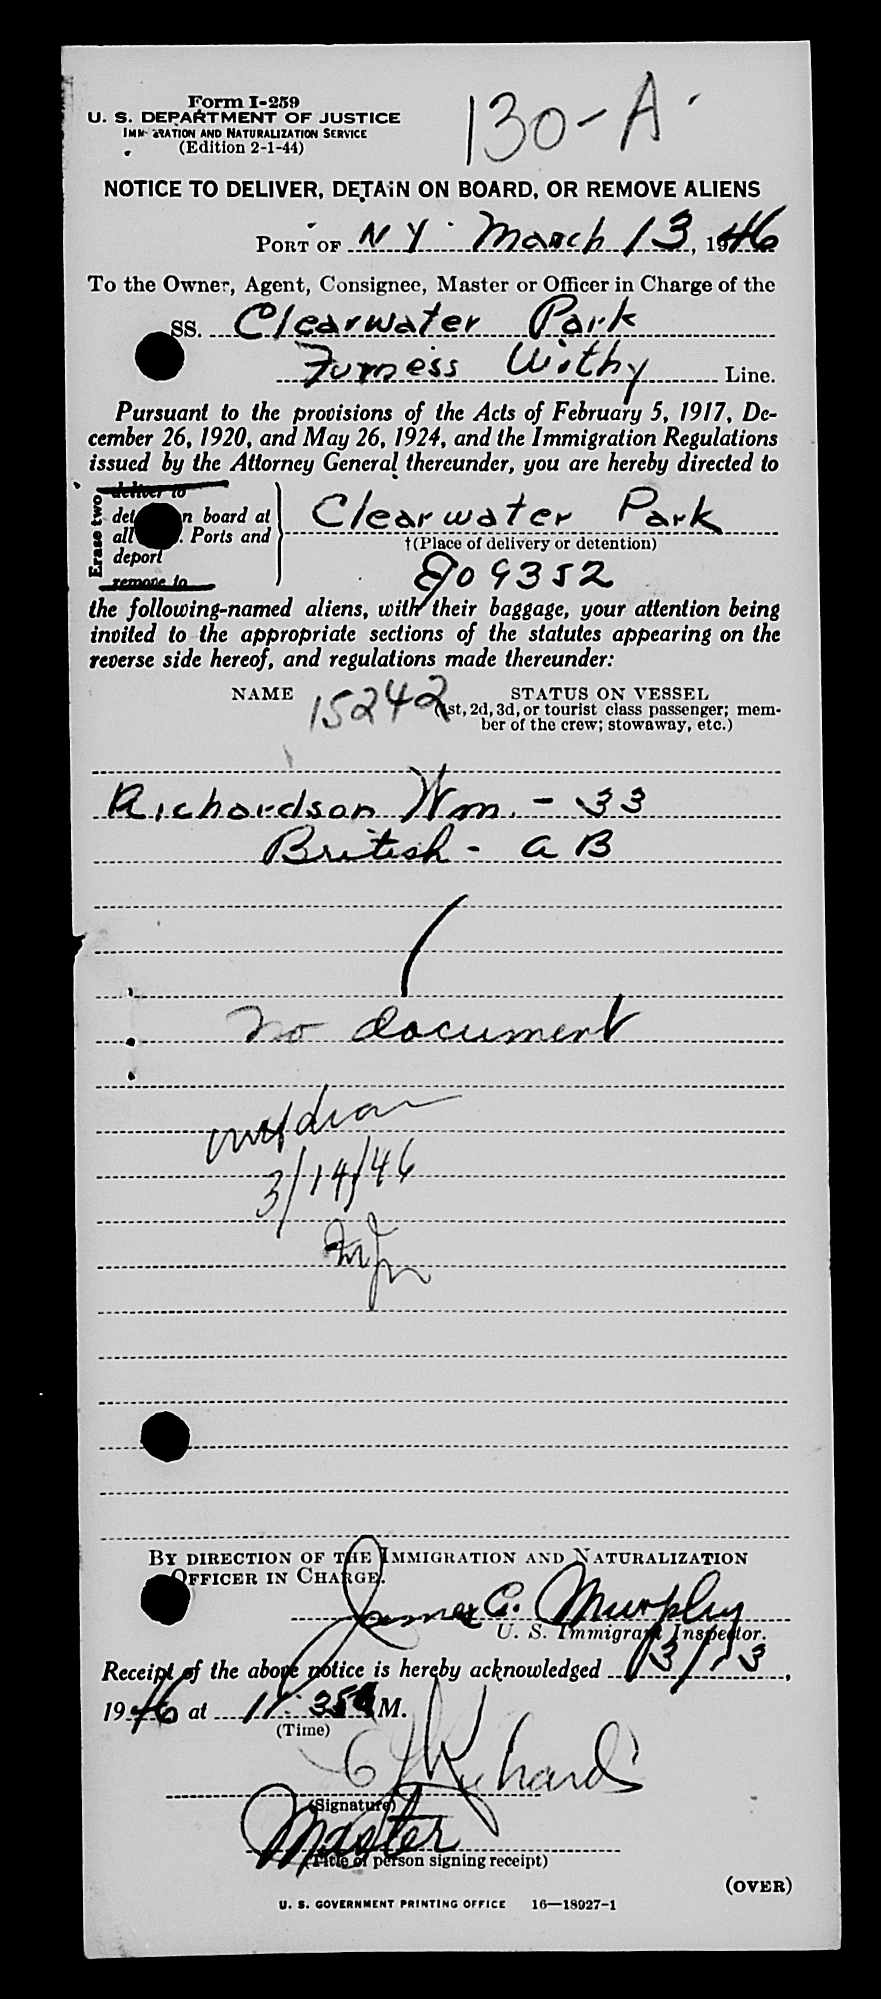 Form I-259
130-A
U. S. DEPARTMENT OF JUSTICE
IMMIGRATION AND NATURALIZATION SERVICE
(Edition 2-1-44)
NOTICE TO DELIVER, DETAIN ON BOARD, OR REMOVE ALIENS
PORT OF N Y March 13, 1946
To the Owner, Agent, Consignee, Master or Officer in Charge of the
SS. Clearwater Park
Furness Withy Line.
Pursuant to the provisions of the Acts of February 5, 1917, De-
cember 26, 1920, and May 26, 1924, and the Immigration Regulations
issued by the Attorney General thereunder, you are hereby directed to
Erase two
deliver to
det n board at
all . Ports and
deport
remove to
Clearwater Park
†(Place of delivery or detention)
809352
the following-named aliens, with their baggage, your attention being
invited to the appropriate sections of the statutes appearing on the
reverse side hereof, and regulations made thereunder:
NAME 15242 STATUS ON VESSEL
(1st, 2d, 3d, or tourist class passenger; mem-
ber of the crew; stowaway, etc.)
Richardson Wm. - 33
British - a B
no document
3/14/46
BY DIRECTION OF THE IMMIGRATION AND NATURALIZATION
OFFICER IN CHARGE.
James C. Murphy
U. S. Immigrant Inspector.
Receipt of the above notice is hereby acknowledged 3/13,
1946 at 11:35 A M.
(Time)
(Signature)
Master
(Title of person signing receipt)
(OVER)
U. S. GOVERNMENT PRINTING OFFICE 16—18927-1